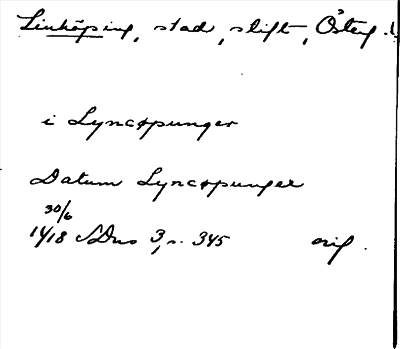 Linköping, stad, stift, Österg.
i Lyncopunger
Datum Lyncopunger
30/6
1418 SDns 3, s. 345 orig.